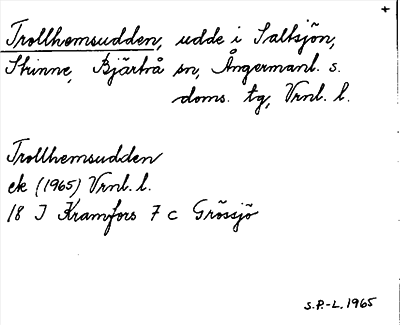 +
Trollhemsudden, udde i Saltsjön,
Skinne, Bjärtrå sn, Ångermanl. s.
doms. tg, Vrnl. l.
Trollhemsudden
ek (1965) Vrnl. l.
18 I Kramfors 7 c Grössjö
S.P.-L. 1965